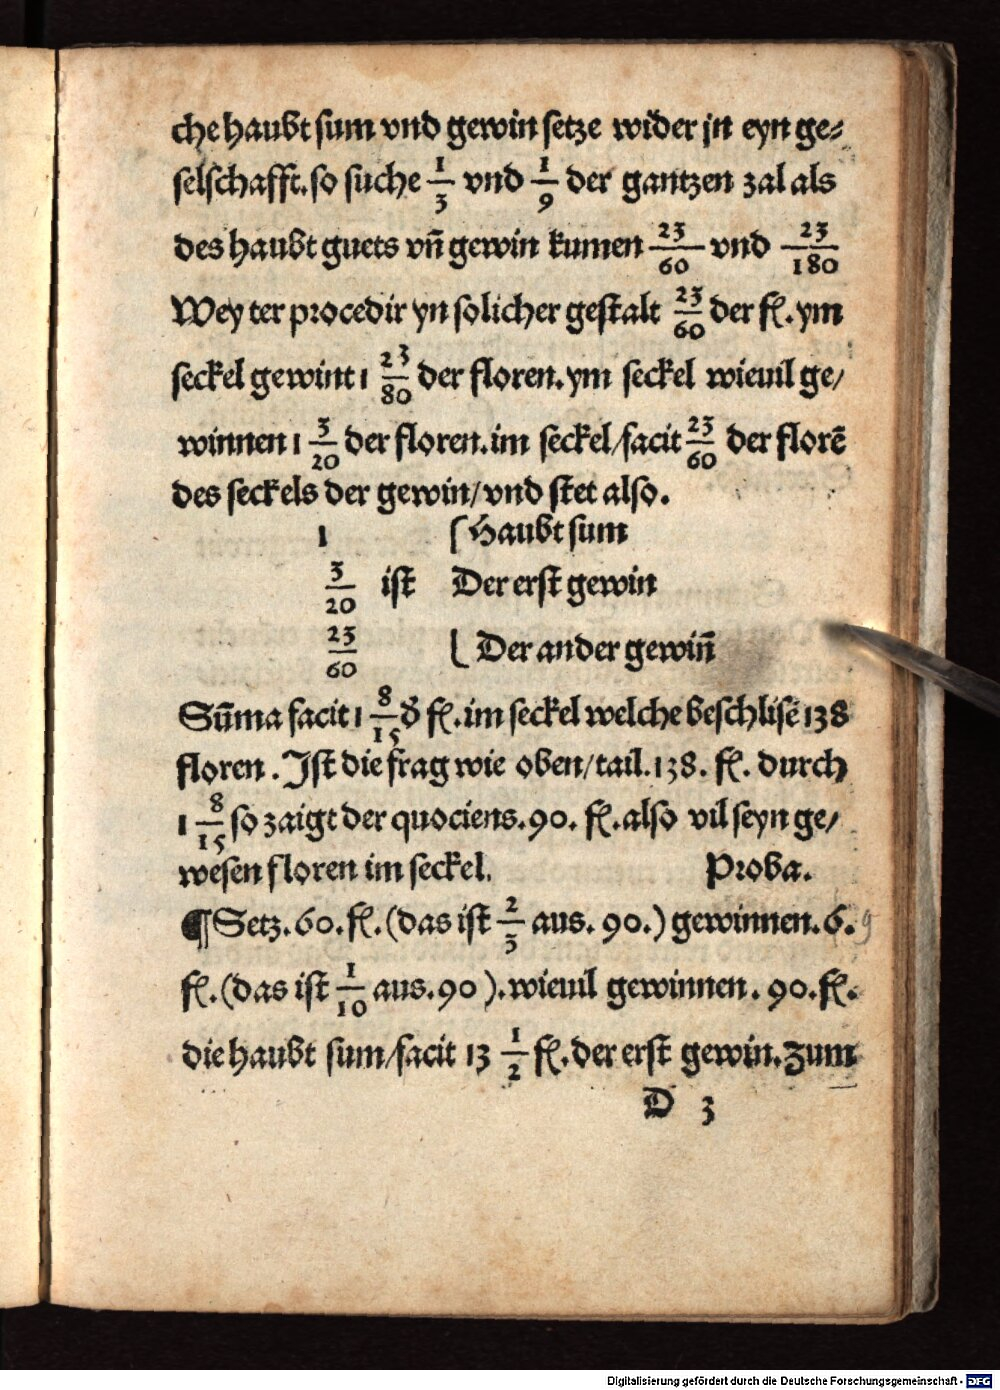 che haubt sum vnd gewin setze wider jn eyn ge⸗
selschafft. so suche 1/3 vnd 1/9 der gantzen zal als
des haubt guets vn̄ gewin kumen 23/60 vnd 23/180
Wey ter procedir yn solicher gestalt 23/60 der fl. ym
seckel gewint 1 23/80 der floren. ym seckel wieuil ge/
winnen 1 3/20 der floren. im seckel/facit 23/60 der florē
des seckels der gewin/vnd stet also.
1 Haubt sum
3/20 ist Der erst gewin
23/60 Der ander gewin̄
Sūma facit 1 8/15 d̄ fl. im seckel welche beschlisē 138
floren. Ist die frag wie oben/tail. 138. fl. durch
1 8/15 so zaigt der quociens. 90. fl. also vil seyn ge/
wesen floren im seckel. Proba.
¶ Setz. 60. fl. (das ist 2/3 aus. 90.) gewinnen. 6. 9
fl. (das ist 1/10 aus. 90). wieuil gewinnen. 90. fl.
die haubt sum/facit 13 1/2 fl. der erst gewin. Zum
D 3
Digitalisierung gefördert durch die Deutsche Forschungsgemeinschaft - DFG